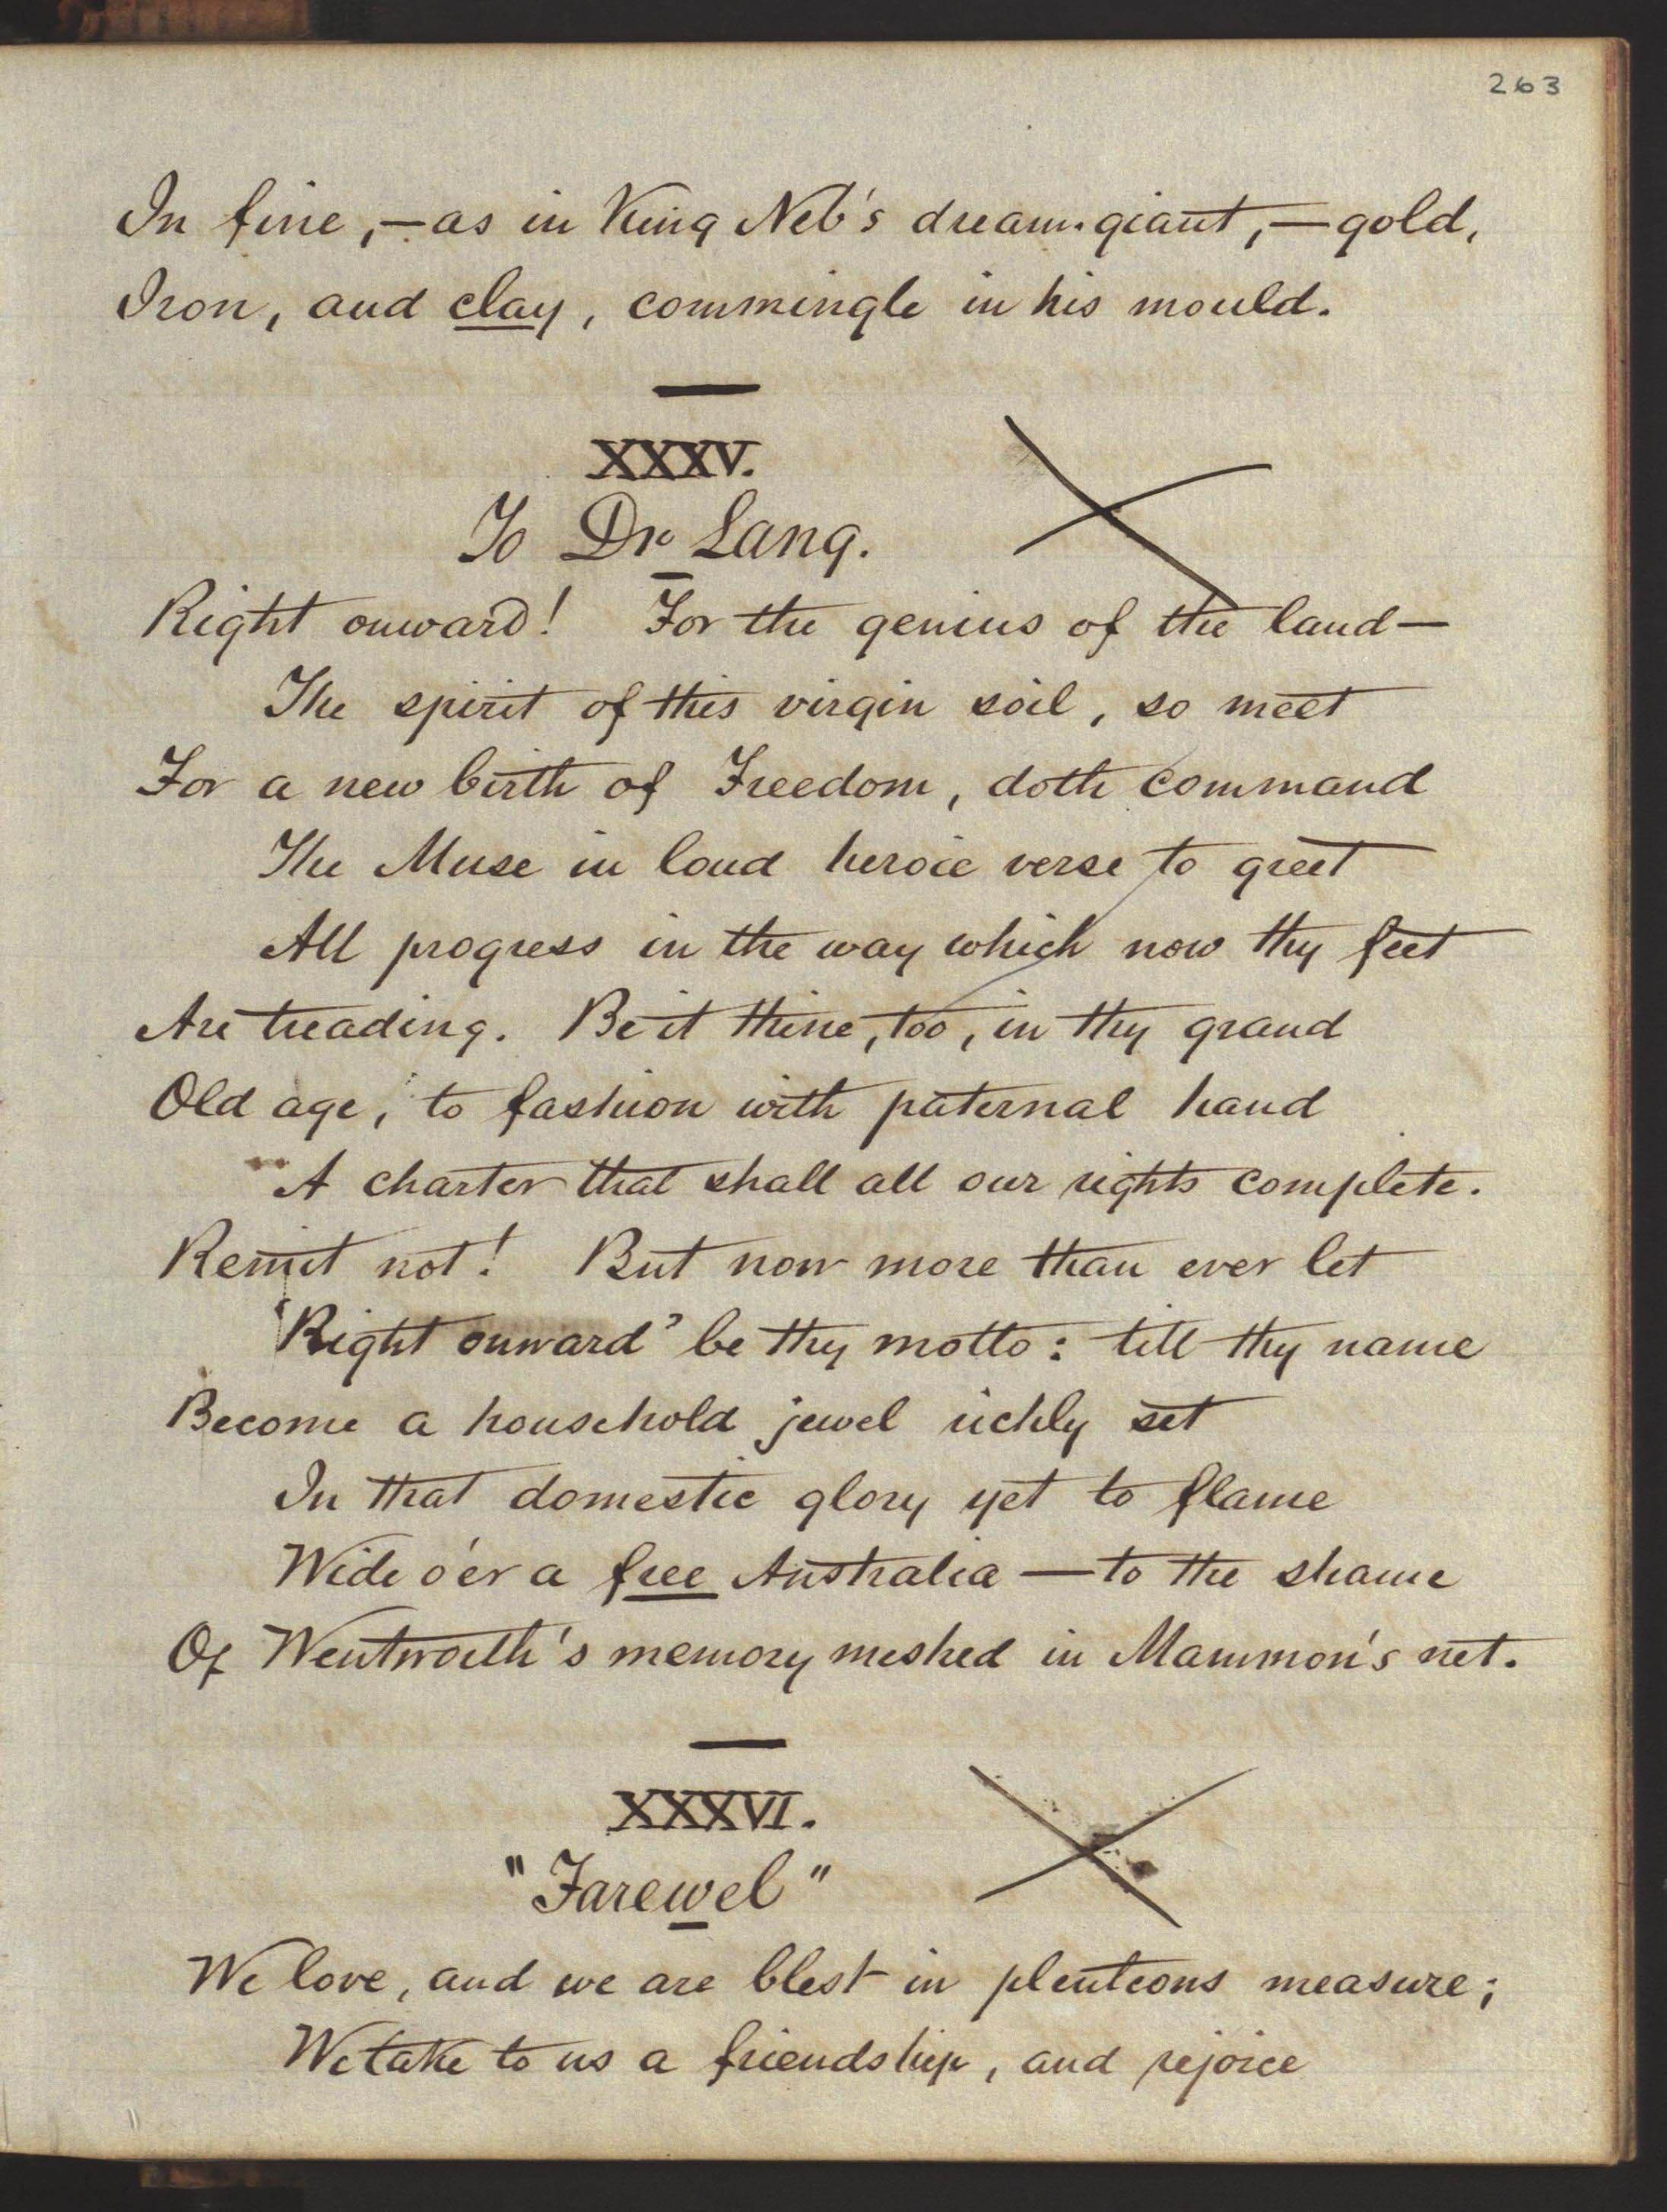 263
In fine,—as in King Neb's dream-giant,—gold,
Iron, and clay, commingle in his mould.
XXXV.
To Dr. Lang.
Right onward! For the genius of the land—
The spirit of this virgin soil, so meet
For a new birth of Freedom, doth command
The Muse in loud heroic verse to greet
All progress in the way which now thy feet
Are treading. Be it thine, too, in thy grand
Old age, to fashion with paternal hand
A charter that shall all our rights complete.
Remit not! But now more than ever let
'Right onward' be thy motto: till thy name
Become a household jewel richly set
In that domestic glory yet to flame
Wide o'er a free Australia—to the shame
Of Wentworth's memory meshed in Mammon's net.
XXXVI.
"Farewel"
We love, and we are blest in plenteous measure;
We take to us a friendship, and rejoice